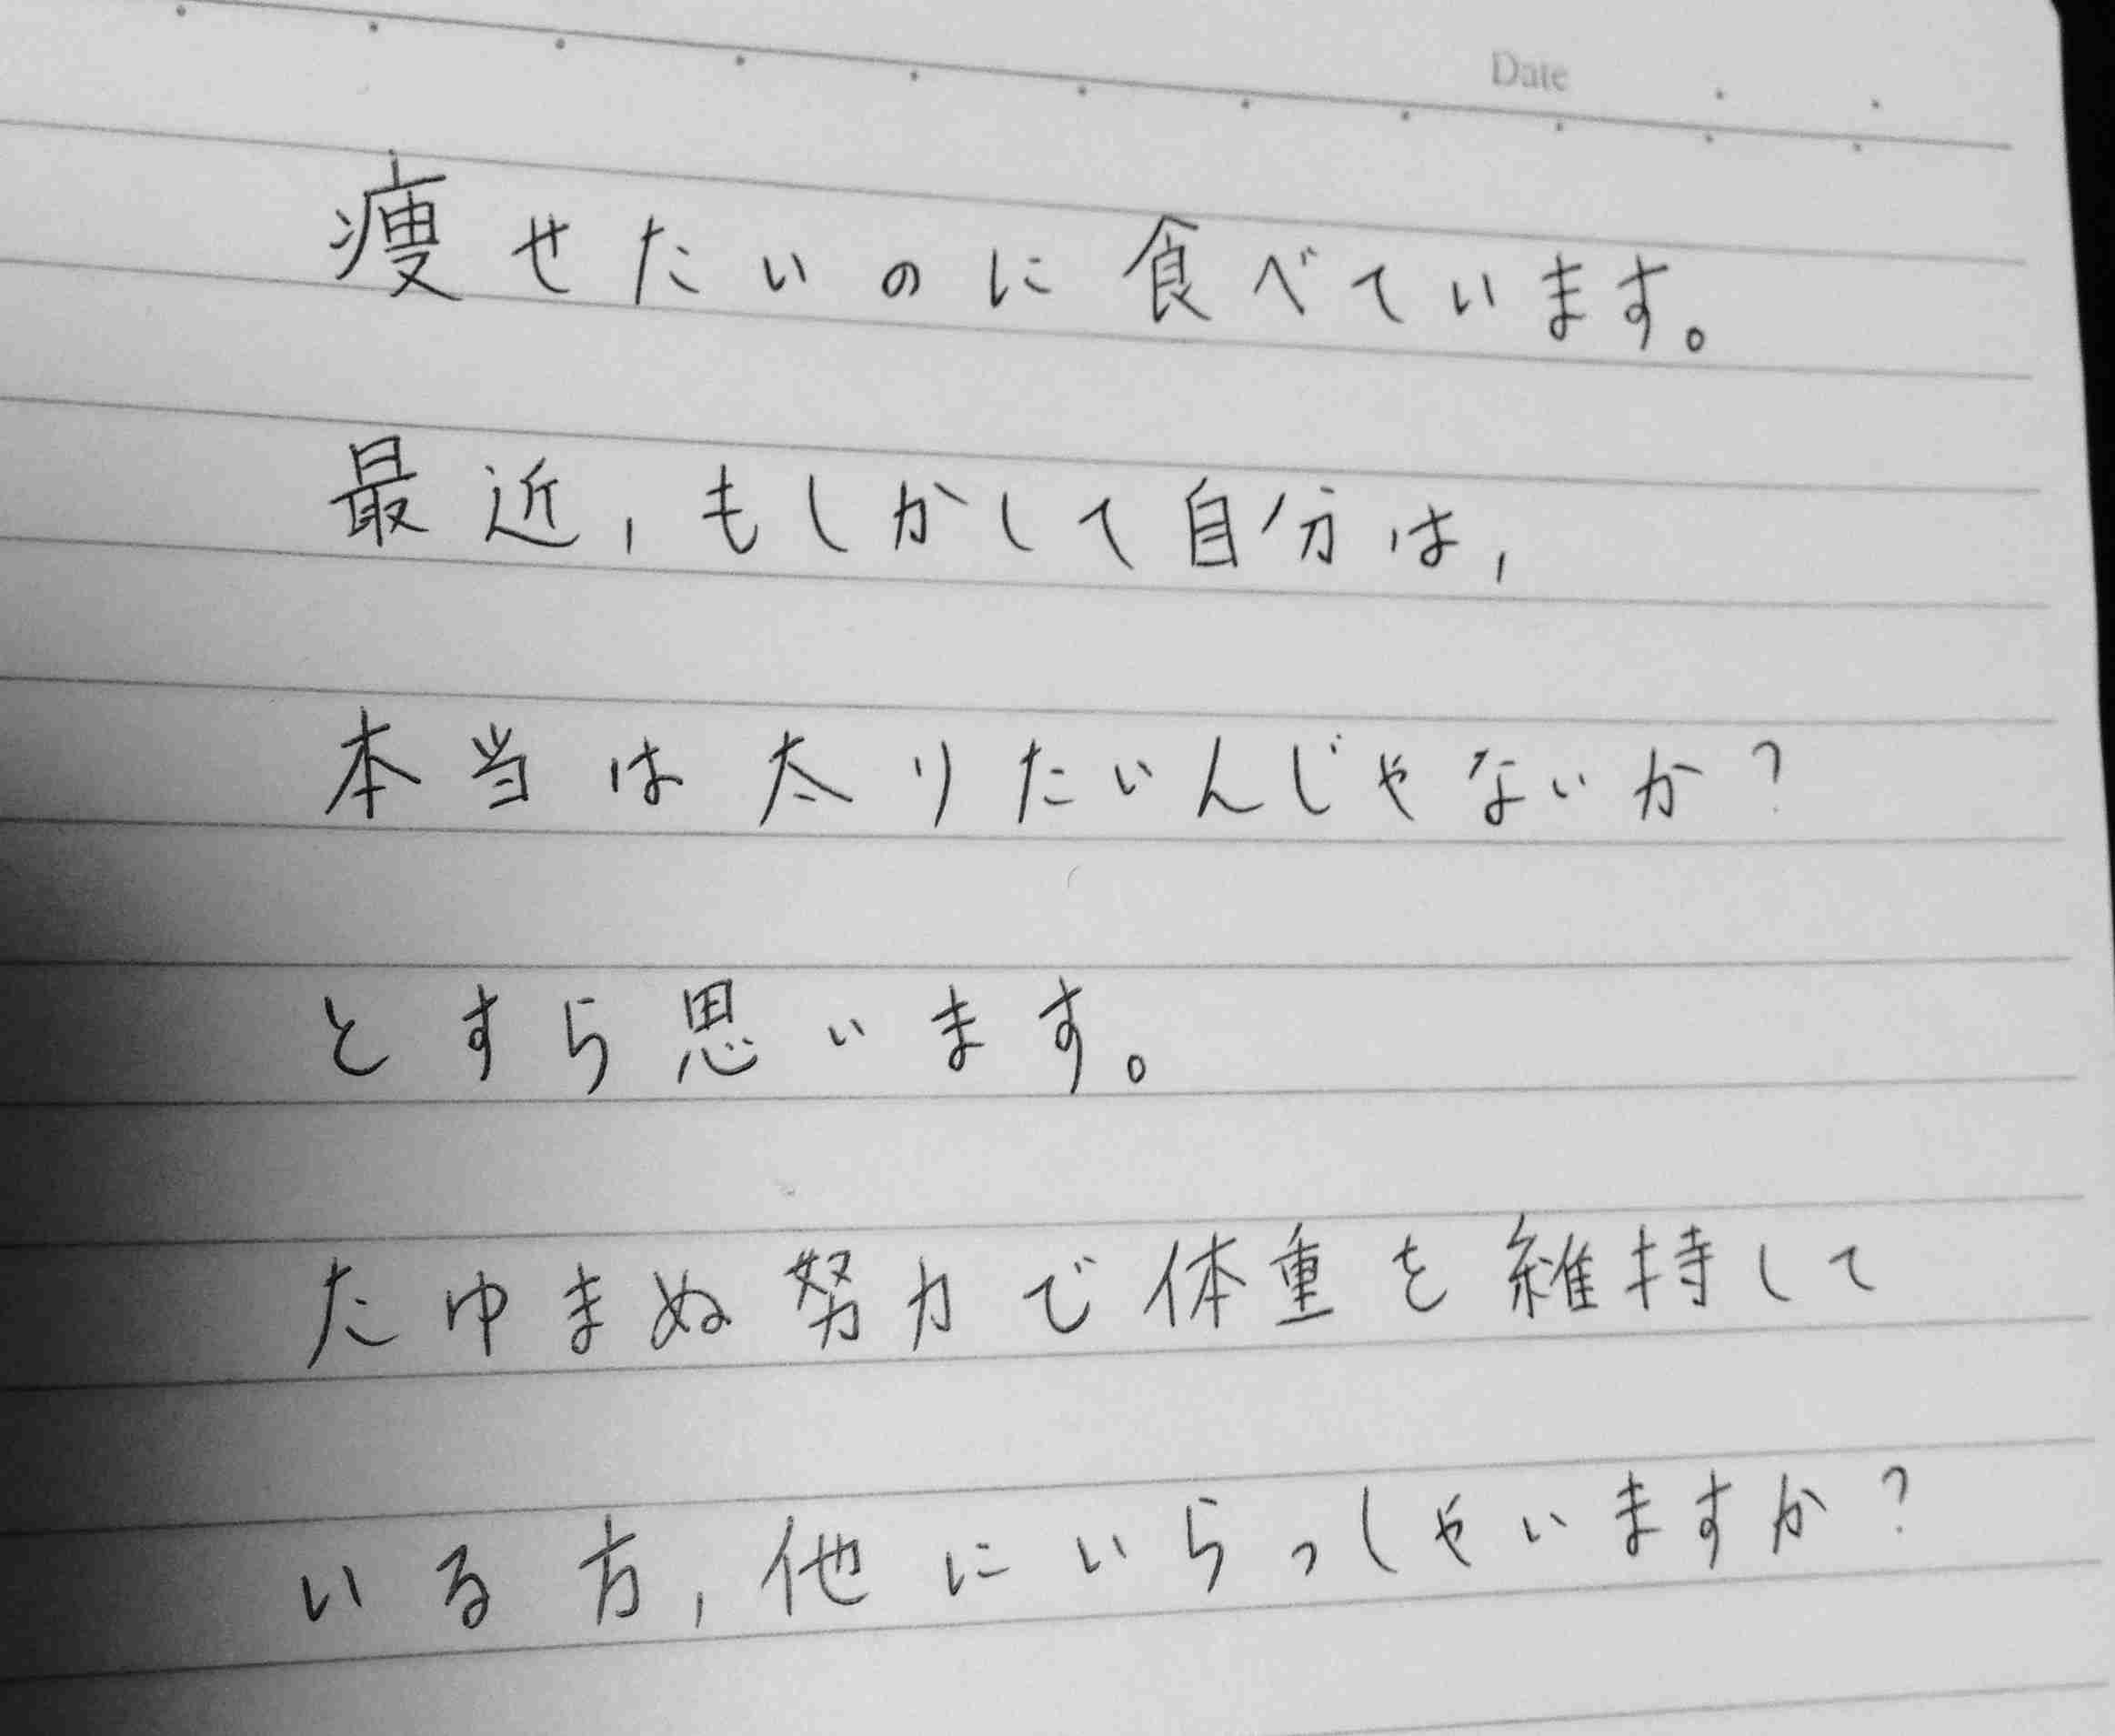 Date
痩せたいのに食べています。
最近，もしかして自分は，
本当は太りたいんじゃないか？
とすら思います。
たゆまぬ努力で体重を維持して
いる方，他にいらっしゃいますか？